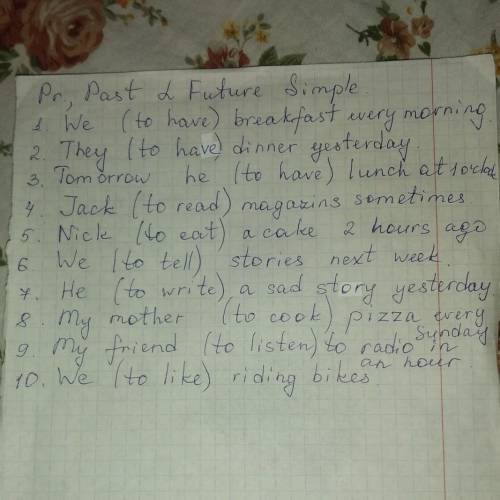 Pr, Past & Future Simple.
1. We (to have) breakfast every morning.
2. They (to have) dinner yesterday.
3. Tomorrow he (to have) lunch at 1 o'clock
4. Jack (to read) magazins sometimes
5. Nick (to eat) a cake 2 hours ago
6. We (to tell) stories next week.
7. He (to write) a sad story yesterday
8. My mother (to cook) pizza every
Sunday
9. My friend (to listen) to radio in
an hour.
10. We (to like) riding bikes.